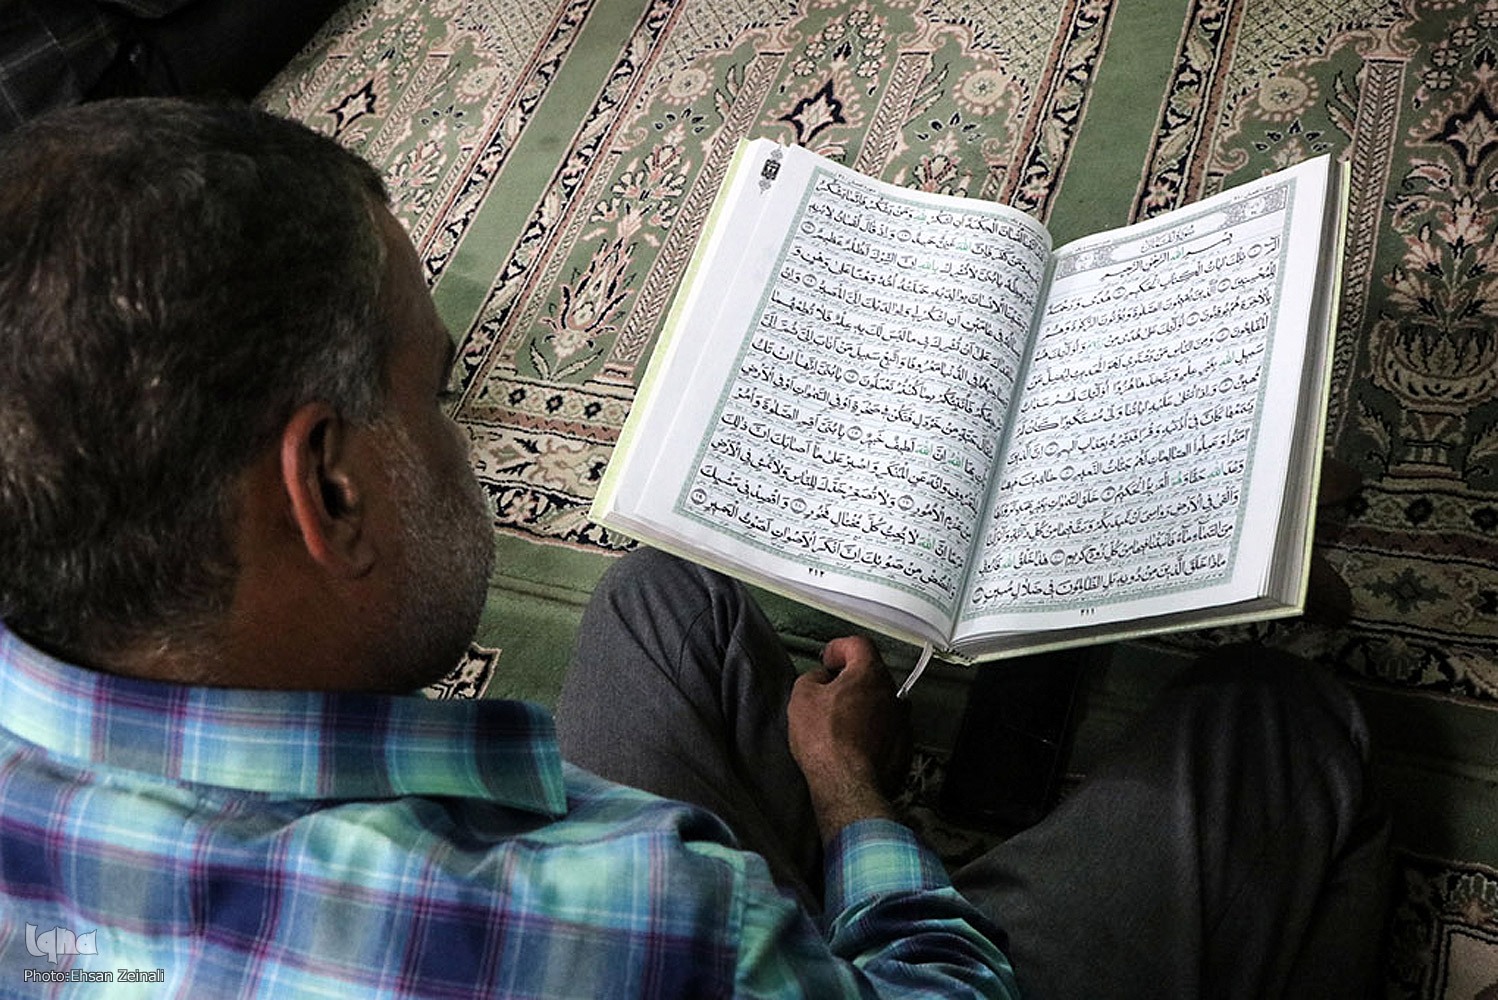 سُورَةُ لُقْمَان
بِسْمِ اللهِ الرَّحْمٰنِ الرَّحِيمِ
الٓمٓ ﴿١﴾ تِلْكَ اٰيَاتُ الْكِتَابِ الْحَكِيمِ ﴿٢﴾ هُدًى وَرَحْمَةً
لِلْمُحْسِنِينَ ﴿٣﴾ الَّذِينَ يُقِيمُونَ الصَّلٰوةَ وَيُؤْتُونَ الزَّكٰوةَ وَهُمْ
بِالْاٰخِرَةِ هُمْ يُوقِنُونَ ﴿٤﴾ اُولٰئِكَ عَلٰى هُدًى مِنْ رَبِّهِمْ وَاُولٰئِكَ هُمُ
الْمُفْلِحُونَ ﴿٥﴾ وَمِنَ النَّاسِ مَنْ يَشْتَرِي لَهْوَ الْحَدِيثِ لِيُضِلَّ عَنْ
سَبِيلِ اللهِ بِغَيْرِ عِلْمٍ وَيَتَّخِذَهَا هُزُوًا اُولٰئِكَ لَهُمْ عَذَابٌ
مُهِينٌ ﴿٦﴾ وَاِذَا تُتْلٰى عَلَيْهِ اٰيَاتُنَا وَلّٰى مُسْتَكْبِرًا كَاَنْ لَمْ
يَسْمَعْهَا كَاَنَّ فِي اُذُنَيْهِ وَقْرًا فَبَشِّرْهُ بِعَذَابٍ اَلِيمٍ ﴿٧﴾ اِنَّ الَّذِينَ
اٰمَنُوا وَعَمِلُوا الصَّالِحَاتِ لَهُمْ جَنَّاتُ النَّعِيمِ ﴿٨﴾ خَالِدِينَ فِيهَا
وَعْدَ اللهِ حَقًّا وَهُوَ الْعَزِيزُ الْحَكِيمُ ﴿٩﴾ خَلَقَ السَّمٰوَاتِ بِغَيْرِ عَمَدٍ تَرَوْنَهَا
وَاَلْقٰى فِي الْاَرْضِ رَوَاسِيَ اَنْ تَمِيدَ بِكُمْ وَبَثَّ فِيهَا مِنْ كُلِّ دَابَّةٍ وَاَنْزَلْنَا
مِنَ السَّمَاءِ مَاءً فَاَنْبَتْنَا فِيهَا مِنْ كُلِّ زَوْجٍ كَرِيمٍ ﴿١٠﴾ هٰذَا خَلْقُ اللهِ فَاَرُونِي
مَاذَا خَلَقَ الَّذِينَ مِنْ دُونِهِ بَلِ الظَّالِمُونَ فِي ضَلَالٍ مُبِينٍ ﴿١١﴾
٤١١
اٰتَيْنَا لُقْمَانَ الْحِكْمَةَ اَنِ اشْكُرْ لِلّٰهِ وَمَنْ يَشْكُرْ فَاِنَّمَا يَشْكُرُ
وَمَنْ كَفَرَ فَاِنَّ اللهَ غَنِيٌّ حَمِيدٌ ﴿١٢﴾ وَاِذْ قَالَ لُقْمَانُ لِابْنِهِ
يَعِظُهُ يَا بُنَيَّ لَا تُشْرِكْ بِاللهِ اِنَّ الشِّرْكَ لَظُلْمٌ عَظِيمٌ ﴿١٣﴾
الْاِنْسَانَ بِوَالِدَيْهِ حَمَلَتْهُ اُمُّهُ وَهْنًا عَلٰى وَهْنٍ وَ
فِي عَامَيْنِ اَنِ اشْكُرْ لِي وَلِوَالِدَيْكَ اِلَيَّ الْمَصِيرُ ﴿١٤﴾ وَاِنْ
عَلٰى اَنْ تُشْرِكَ بِي مَا لَيْسَ لَكَ بِهِ عِلْمٌ فَلَا تُطِعْهُمَا
فِي الدُّنْيَا مَعْرُوفًا وَاتَّبِعْ سَبِيلَ مَنْ اَنَابَ اِلَيَّ ثُمَّ اِلَيَّ
فَاُنَبِّئُكُمْ بِمَا كُنْتُمْ تَعْمَلُونَ ﴿١٥﴾ يَا بُنَيَّ اِنَّهَا اِنْ تَكُ
مِثْقَالَ حَبَّةٍ مِنْ خَرْدَلٍ فَتَكُنْ فِي صَخْرَةٍ اَوْ فِي السَّمٰوَاتِ اَوْ فِي الْاَرْضِ
يَأْتِ بِهَا اللهُ اِنَّ اللهَ لَطِيفٌ خَبِيرٌ ﴿١٦﴾ يَا بُنَيَّ اَقِمِ الصَّلٰوةَ وَاْمُرْ
بِالْمَعْرُوفِ وَانْهَ عَنِ الْمُنْكَرِ وَاصْبِرْ عَلٰى مَا اَصَابَكَ اِنَّ ذٰلِكَ
مِنْ عَزْمِ الْاُمُورِ ﴿١٧﴾ وَلَا تُصَعِّرْ خَدَّكَ لِلنَّاسِ وَلَا تَمْشِ فِي الْاَرْضِ
مَرَحًا اِنَّ اللهَ لَا يُحِبُّ كُلَّ مُخْتَالٍ فَخُورٍ ﴿١٨﴾ وَاقْصِدْ فِي مَشْيِكَ
وَاغْضُضْ مِنْ صَوْتِكَ اِنَّ اَنْكَرَ الْاَصْوَاتِ لَصَوْتُ الْحَمِيرِ ﴿١٩﴾
٤١٢
iqna
Photo:Ehsan Zeinali